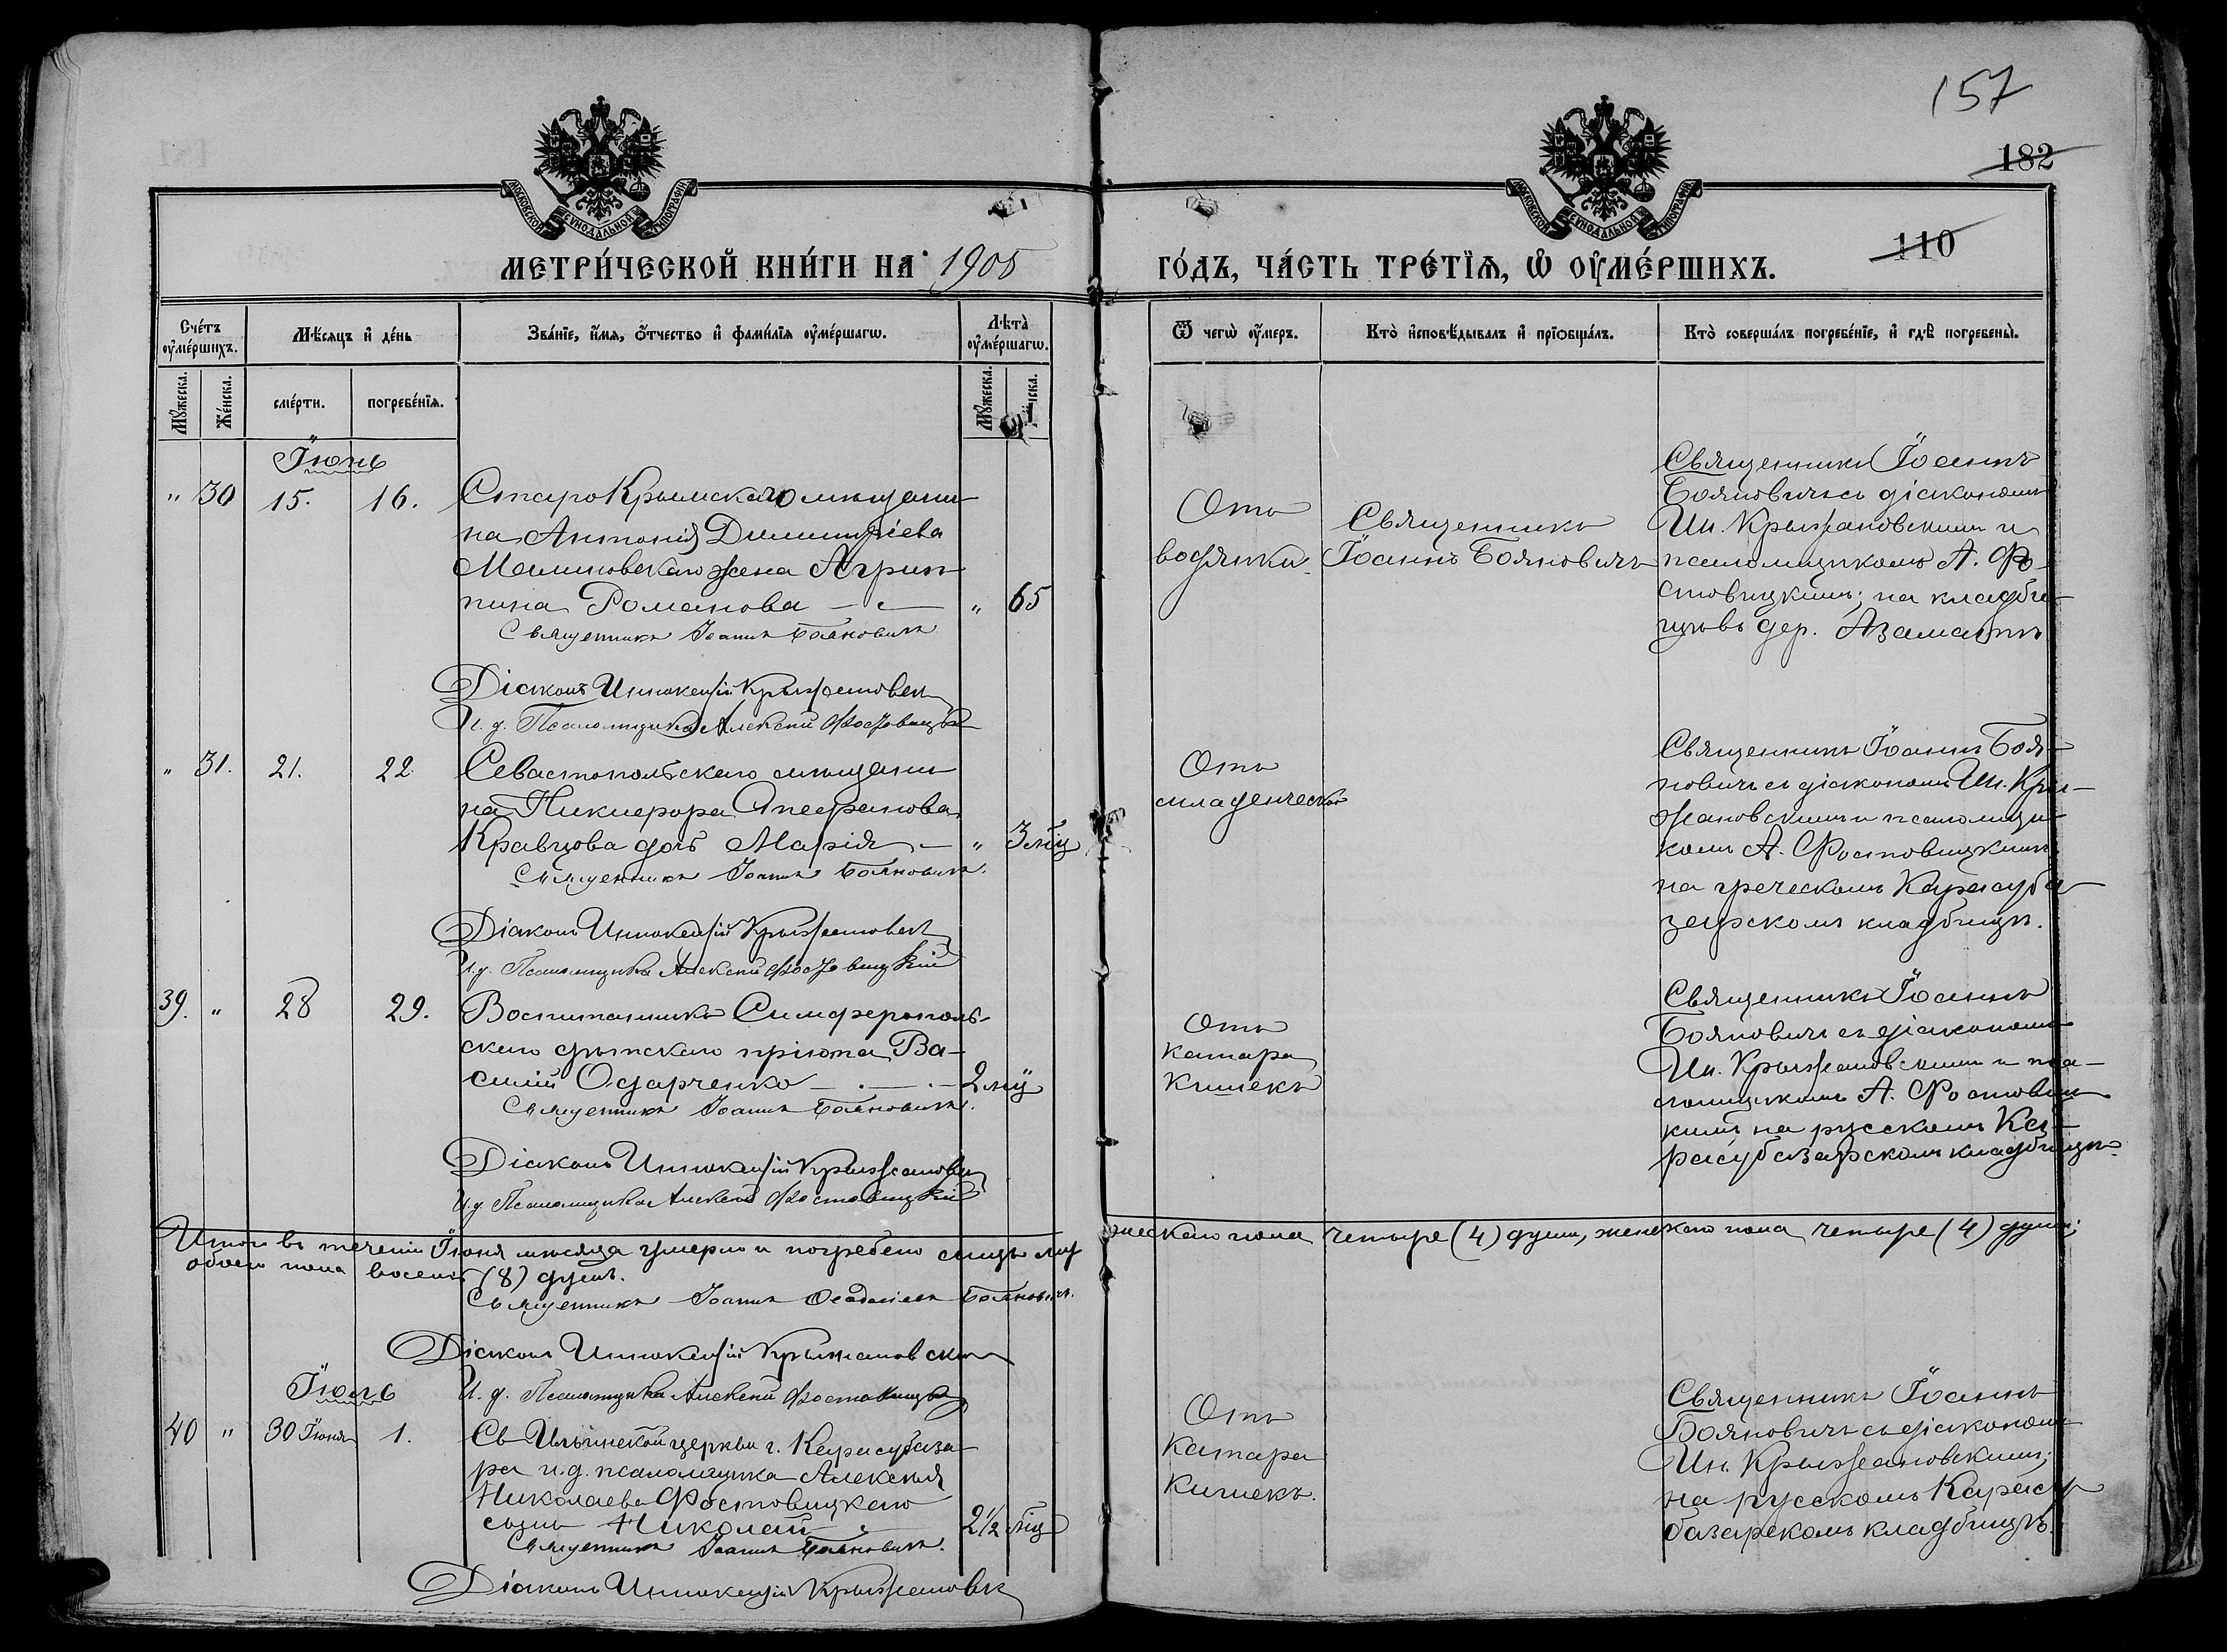 157
182
110
МОСКОВСКОЙ СѴНОДАЛЬНОЙ ТИПОГРАФІИ
МОСКОВСКОЙ СѴНОДАЛЬНОЙ ТИПОГРАФІИ
МЕТРИ́ЧЕСКОЙ КНИ́ГИ НА 1905
ГО́ДЪ, ЧА́СТЬ ТРЕ́ТІѦ, Ѡ ОУМЕ́РШИХЪ.
Сче́тъ оумершихъ.
Мѣсяцъ и де́нь
Зва́нїе, и́мя, о́тчество и фами́лїя оуме́ршагѡ.
Лѣта̀ оуме́ршагѡ.
Ѿ чегѡ̀ оу́меръ.
Кто̀ исповѣ́дывалъ и прїѻбща́лъ.
Кто̀ соверша́лъ погребе́нїе, и гдѣ̀ погребены̀.
Мꙋжеска.
Же́нска.
сме́рти.
погребе́нїя.
Мꙋжеска.
Іюнь
" 30 15. 16. СтароКрымскаго мѣщани-
на Антонія Димитріева
Малиновскаго жена Агрип-
пина Романова " 65
Священникъ Іоаннъ Бояновичъ
Діаконъ Иннокентій Крыжановск
И. д. Псаломщика Алексѣй Фостовицкій
Отъ
водянки
Священникъ
Іоаннъ Бояновичъ
Священникъ Іоаннъ
Бояновичъ съ діакономъ
Ин. Крыжановскимъ и
псаломщикомъ А. Фо-
стовицкимъ; на кладби-
щѣ въ дер. Азаматъ
" 31. 21. 22. Севастопольскаго мѣщани-
на Никифора Стефанова
Кравцова дочь Марія " 3 мѣц
Священникъ Іоаннъ Бояновичъ.
Діаконъ Иннокентій Крыжановск
И. д. Псаломщика Алексѣй Фостовицкій
Отъ
младенческой
Священникъ Іоаннъ Боя-
новичъ съ діакономъ Ин. Кры-
жановскимъ и псаломщи-
комъ А. Фостовицкимъ
на греческомъ Карасуба-
зарскомъ кладбищѣ.
39. " 28 29. Воспитанникъ Симферополь-
скаго дѣтскаго пріюта Ва-
силій Одарченко 2 мц
Священникъ Іоаннъ Бояновичъ.
Діаконъ Иннокентій Крыжановск
И. д. Псаломщика Алексѣй Фостовицкій
Отъ
катара
кишекъ
Священникъ Іоаннъ
Бояновичъ съ діакономъ
Ин. Крыжановскимъ и пса-
ломщикомъ А. Фостовиц-
кимъ на русскомъ Ка-
расубазарскомъ кладбищѣ
Итого въ теченіи Іюня мѣсяца умерло и погребено лицъ муж
жескаго пола четыре (4) души, женскаго пола четыре (4) души;
обоего пола восемь (8) душъ.
Священникъ Іоаннъ Бояновичъ.
Діаконъ Иннокентій Крыжановск
И. д. Псаломщика Алексѣй Фостовицкій
Іюль
40 " 30 Іюня 1. Св Ильинской церкви г. Карасубаза-
ра и. д. псаломщика Алексѣя
Николаева Фостовицкаго
сынъ Николай 2½ мѣц
Священникъ Іоаннъ Бояновичъ.
Діаконъ Иннокентій Крыжановск
Отъ
катара
кишекъ.
Священникъ Іоаннъ
Бояновичъ съ діакономъ
Ин. Крыжановскимъ;
на русскомъ Карасу-
базарскомъ кладбищѣ.